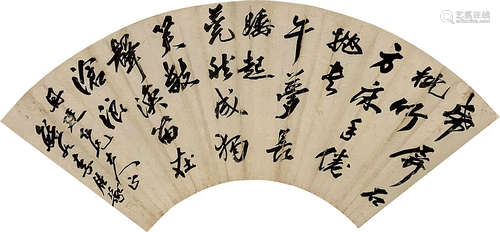 帋屏石
枕竹
方床手倦
抛書
午夢長
睡起
莞然成獨
笑數
聲漁笛在
滄浪